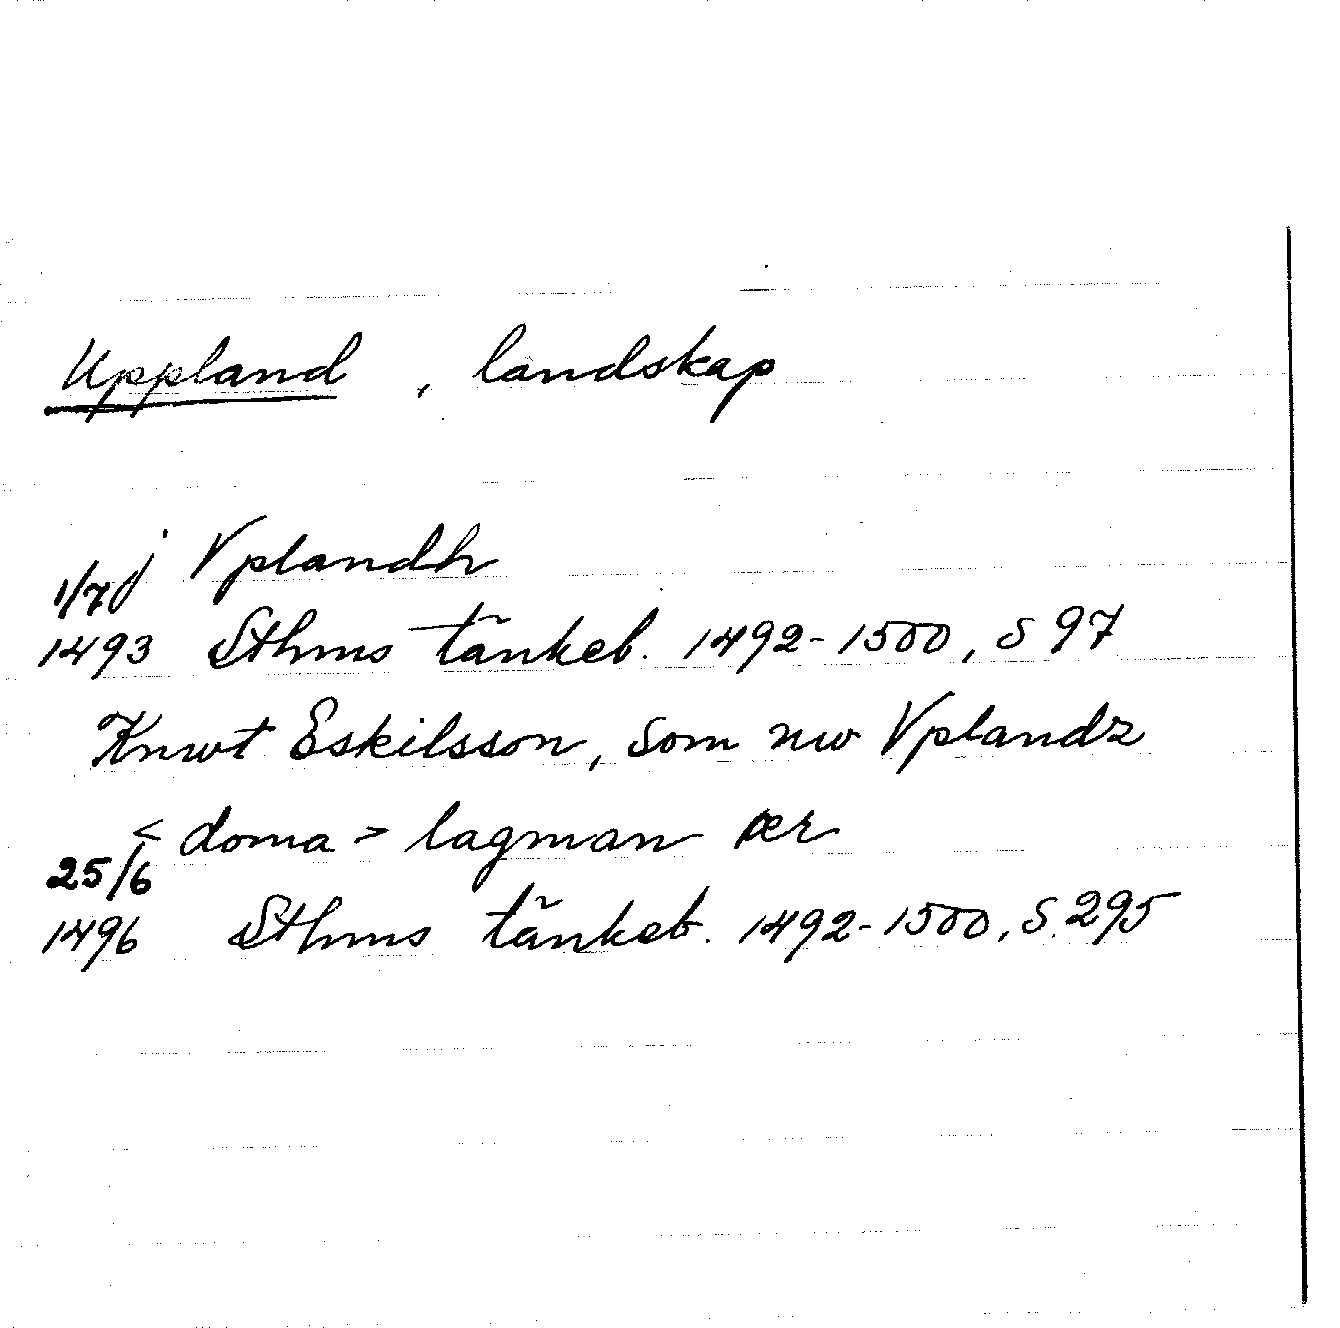 Uppland, landskap
j Vplandh
1/7
1493 Sthms tänkeb. 1492-1500, S 97
Knwt Eskilsson, som nw Vplandz
< doma > lagman ær
25/6
1496 Sthms tänkeb. 1492-1500, S. 295